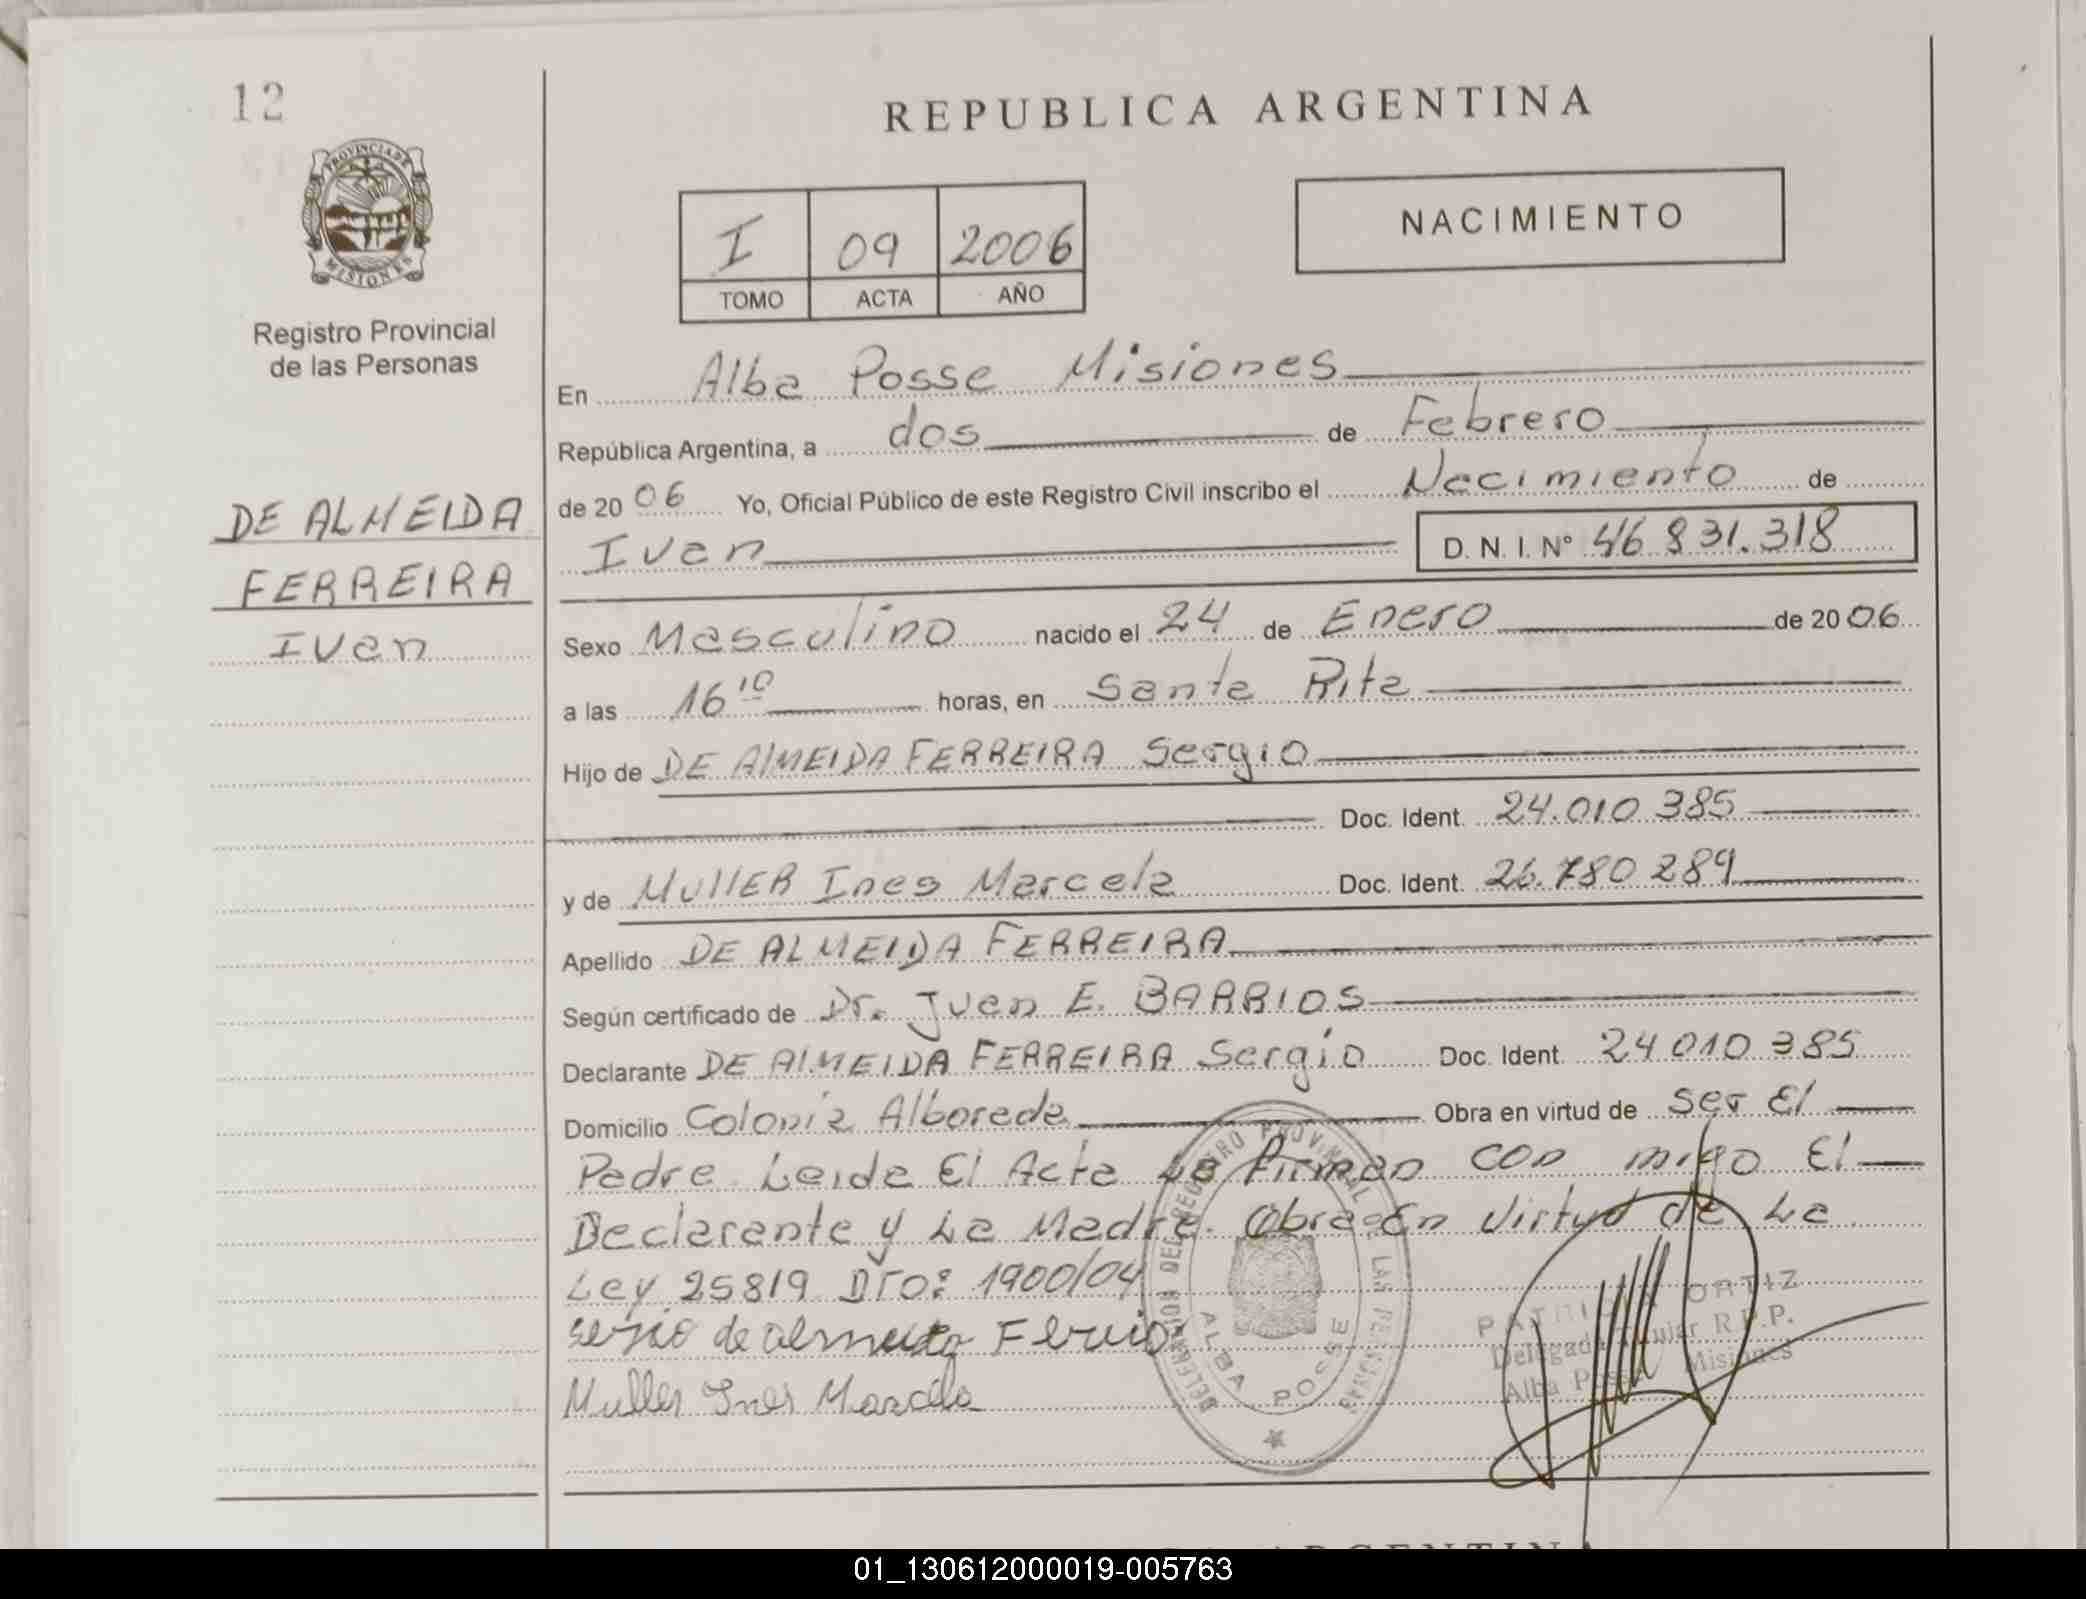 12
REPUBLICA ARGENTINA
PROVINCIA DE
MISIONES
I 09 2006
TOMO ACTA AÑO
NACIMIENTO
Registro Provincial
de las Personas
En Alba Posse Misiones
República Argentina, a dos de Febrero
de 2006 Yo, Oficial Público de este Registro Civil inscribo el Nacimiento de
Ivan D. N. I. N° 46 831.318
DE ALMEIDA
FERREIRA
Ivan
Sexo Masculino nacido el 24 de Enero de 2006
a las 16 10 horas, en Santa Rita
Hijo de DE AlMEIDA FERREIRA Sergio
Doc. Ident. 24.010 385
y de MUllER Ines Marcela Doc. Ident. 26.780 289
Apellido DE ALMEIDA FERREIRA
Según certificado de Dr. Juan E. BARRIOS
Declarante DE AlMEIDA FERREIRA Sergio Doc. Ident. 24 010 385
Domicilio Colonia Alboreda Obra en virtud de ser El
Padre. Leida El Acta La Firman con migo El
Declarante y La Madre. Obra En Virtud de La
Ley 25819 DTO: 1900/04
sergio de almeida Ferreira
Muller Ines Marcela
DELEGACION DEL REGISTRO PROVINCIAL DE LAS PERSONAS
ALBA POSSE
PATRICIA ORTIZ
Delegada Titular R.P.P.
Alba Posse Misiones
01_130612000019-005763